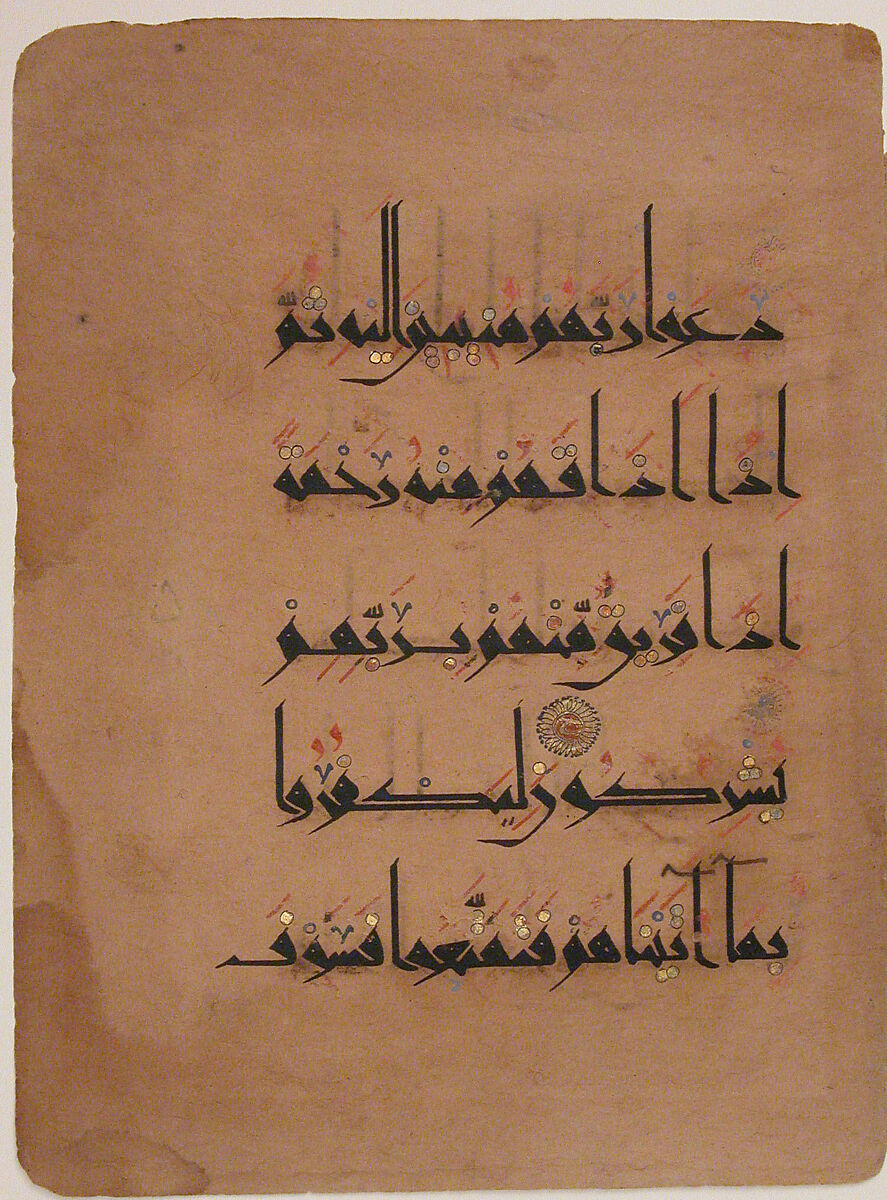 دَعَوْا رَبَّهُمْ مُنِيبِينَ إِلَيْهِ ثُمَّ
إِذَا أَذَاقَهُمْ مِنْهُ رَحْمَةً
إِذَا فَرِيقٌ مِنْهُمْ بِرَبِّهِمْ
يُشْرِكُونَ لِيَكْفُرُوا
بِمَا آتَيْنَاهُمْ فَتَمَتَّعُوا فَسَوْفَ